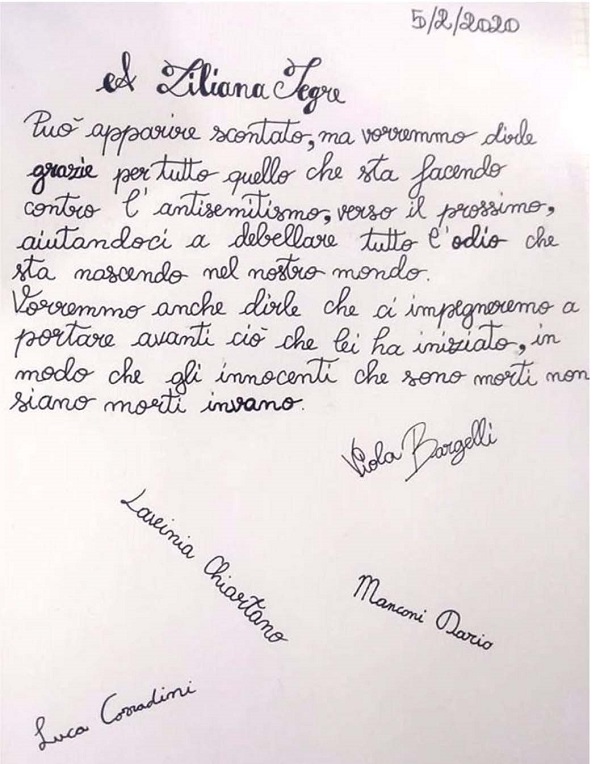 5/2/2020
A Liliana Segre
Può apparire scontato, ma vorremmo dirle
grazie per tutto quello che sta facendo
contro l'antisemitismo, verso il prossimo,
aiutandoci a debellare tutto l'odio che
sta nascendo nel nostro mondo.
Vorremmo anche dirle che ci impegneremo a
portare avanti ciò che lei ha iniziato, in
modo che gli innocenti che sono morti non
siano morti invano.
Viola Bargelli
Lavinia Chiartano
Manconi Dario
Luca Corradini